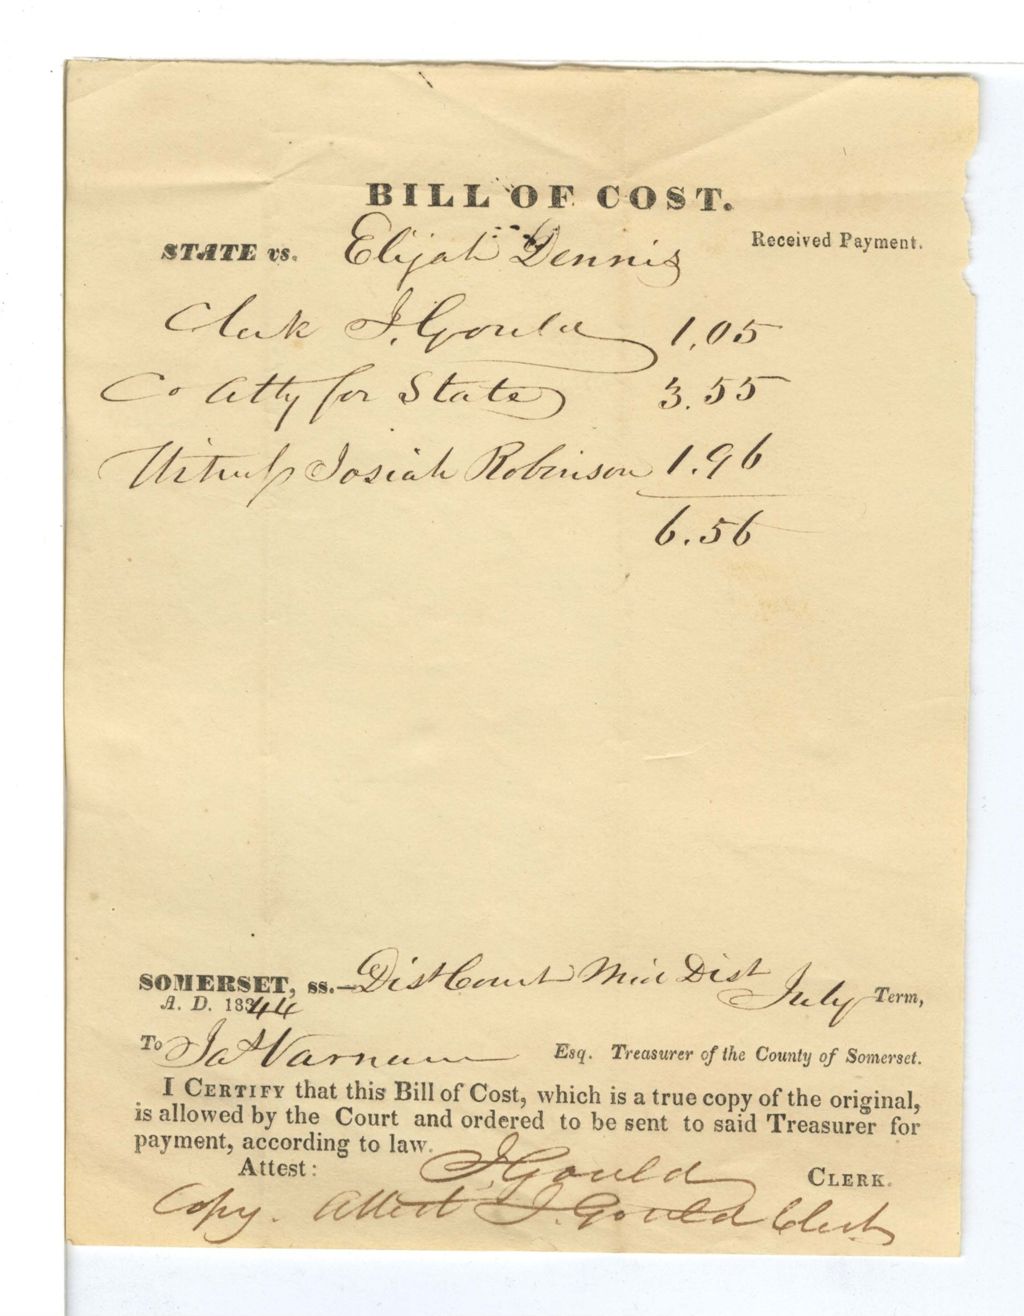 BILL OF COST.
STATE vs. Elijah Dennis Received Payment.
Clerk I. Gould 1.05
Co Atty for State 3.55
Witness Josiah Robinson 1.96
6.56
SOMERSET, ss.—Dist Court Mid Dist July Term,
A. D. 1844
To Jas Varnum Esq. Treasurer of the County of Somerset.
I CERTIFY that this Bill of Cost, which is a true copy of the original,
is allowed by the Court and ordered to be sent to said Treasurer for
payment, according to law.
Attest: I. Gould CLERK.
Copy. Attest I. Gould Clerk